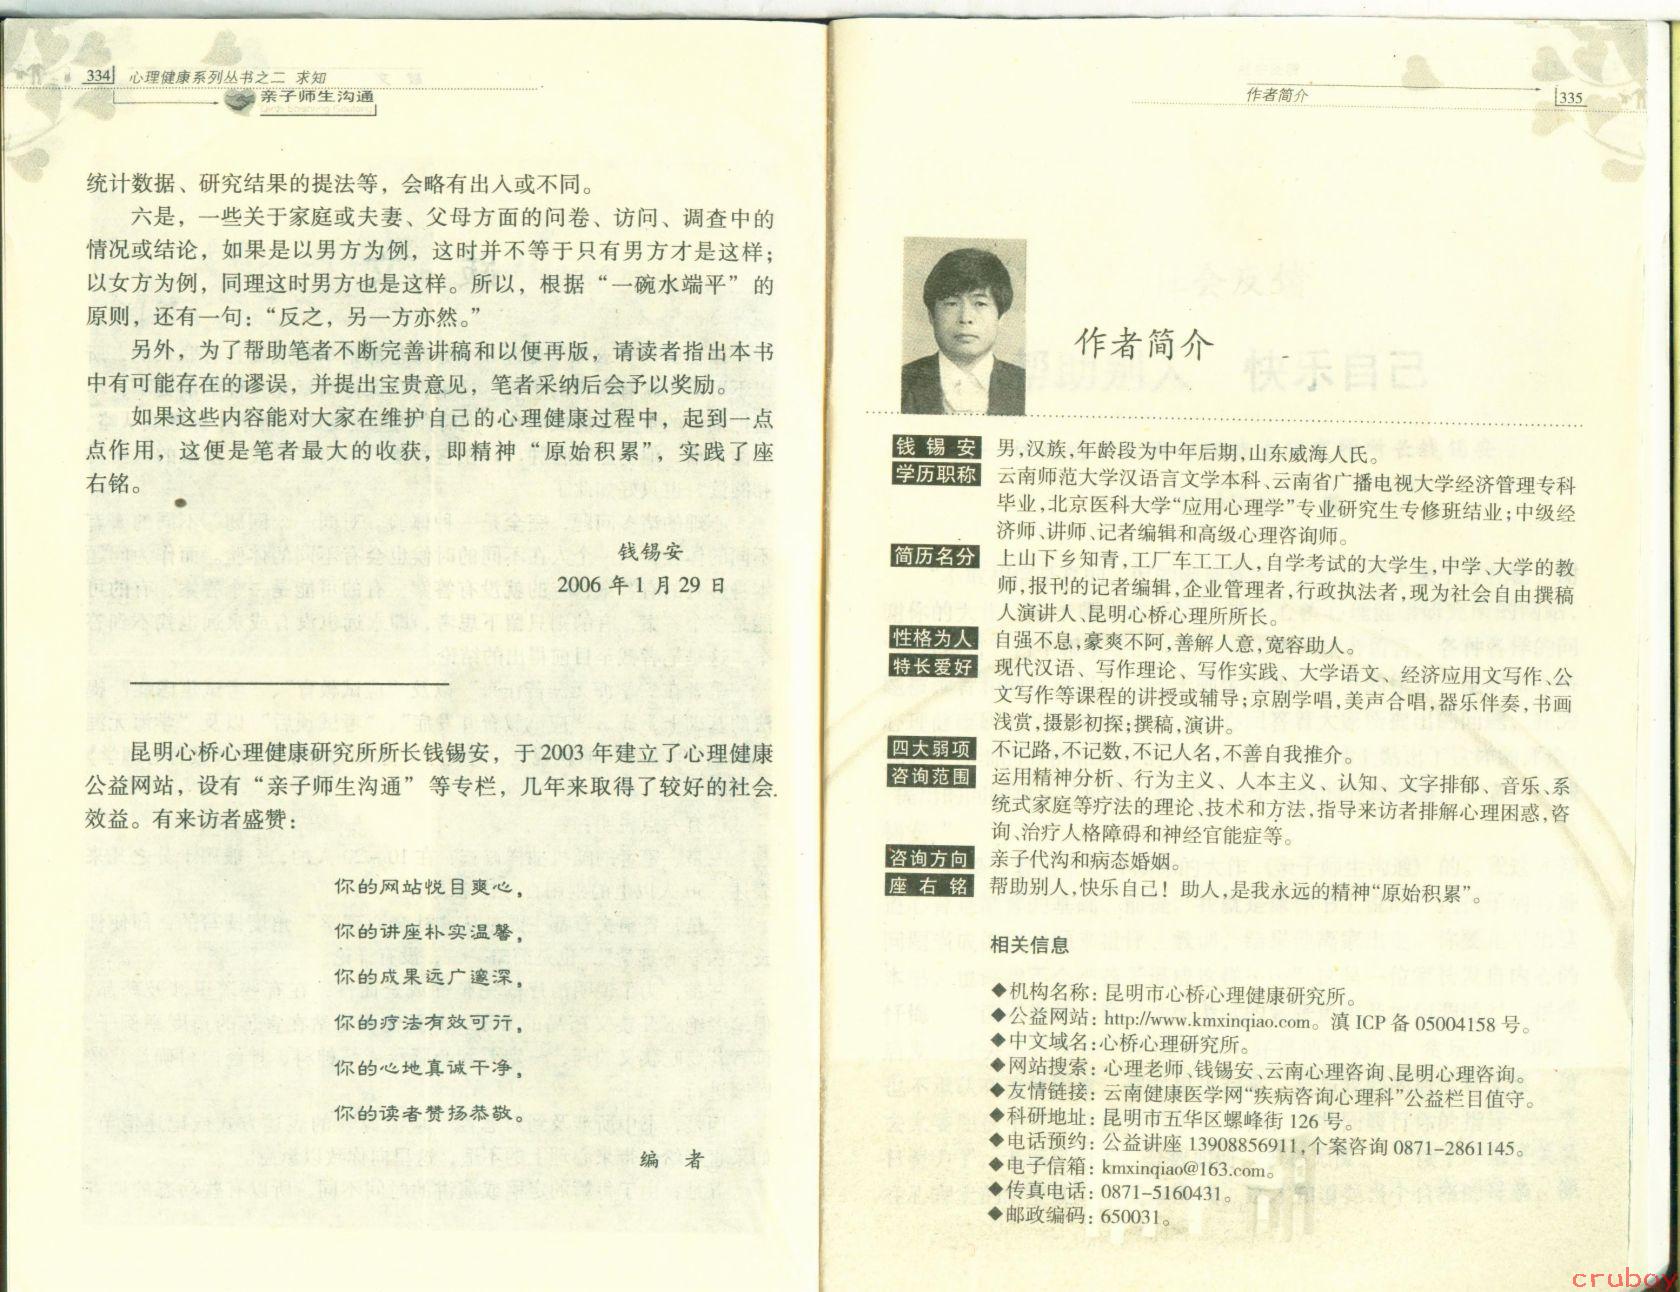 334 心理健康系列丛书之二 求知
亲子师生沟通
统计数据、研究结果的提法等，会略有出入或不同。
六是，一些关于家庭或夫妻、父母方面的问卷、访问、调查中的
情况或结论，如果是以男方为例，这时并不等于只有男方才是这样；
以女方为例，同理这时男方也是这样。所以，根据“一碗水端平”的
原则，还有一句：“反之，另一方亦然。”
另外，为了帮助笔者不断完善讲稿和以便再版，请读者指出本书
中有可能存在的谬误，并提出宝贵意见，笔者采纳后会予以奖励。
如果这些内容能对大家在维护自己的心理健康过程中，起到一点
点作用，这便是笔者最大的收获，即精神“原始积累”，实践了座
右铭。
钱锡安
2006 年 1 月 29 日
昆明心桥心理健康研究所所长钱锡安，于 2003 年建立了心理健康
公益网站，设有“亲子师生沟通”等专栏，几年来取得了较好的社会
效益。有来访者盛赞：
你的网站悦目爽心，
你的讲座朴实温馨，
你的成果远广邃深，
你的疗法有效可行，
你的心地真诚干净，
你的读者赞扬恭敬。
编 者
作者简介 335
作者简介
钱 锡 安 男，汉族，年龄段为中年后期，山东威海人氏。
学历职称 云南师范大学汉语言文学本科、云南省广播电视大学经济管理专科
毕业，北京医科大学“应用心理学”专业研究生专修班结业；中级经
济师、讲师、记者编辑和高级心理咨询师。
简历名分 上山下乡知青，工厂车工工人，自学考试的大学生，中学、大学的教
师，报刊的记者编辑，企业管理者，行政执法者，现为社会自由撰稿
人演讲人、昆明心桥心理所所长。
性格为人 自强不息，豪爽不阿，善解人意，宽容助人。
特长爱好 现代汉语、写作理论、写作实践、大学语文、经济应用文写作、公
文写作等课程的讲授或辅导；京剧学唱，美声合唱，器乐伴奏，书画
浅赏，摄影初探；撰稿，演讲。
四大弱项 不记路，不记数，不记人名，不善自我推介。
咨询范围 运用精神分析、行为主义、人本主义、认知、文字排郁、音乐、系
统式家庭等疗法的理论、技术和方法，指导来访者排解心理困惑，咨
询、治疗人格障碍和神经官能症等。
咨询方向 亲子代沟和病态婚姻。
座 右 铭 帮助别人，快乐自己！助人，是我永远的精神“原始积累”。
相关信息
◆机构名称：昆明市心桥心理健康研究所。
◆公益网站：http://www.kmxinqiao.com。滇 ICP 备 05004158 号。
◆中文域名：心桥心理研究所。
◆网站搜索：心理老师、钱锡安、云南心理咨询、昆明心理咨询。
◆友情链接：云南健康医学网“疾病咨询心理科”公益栏目值守。
◆科研地址：昆明市五华区螺峰街 126 号。
◆电话预约：公益讲座 13908856911，个案咨询 0871-2861145。
◆电子信箱：kmxinqiao@163.com。
◆传真电话：0871-5160431。
◆邮政编码：650031。
cruboy